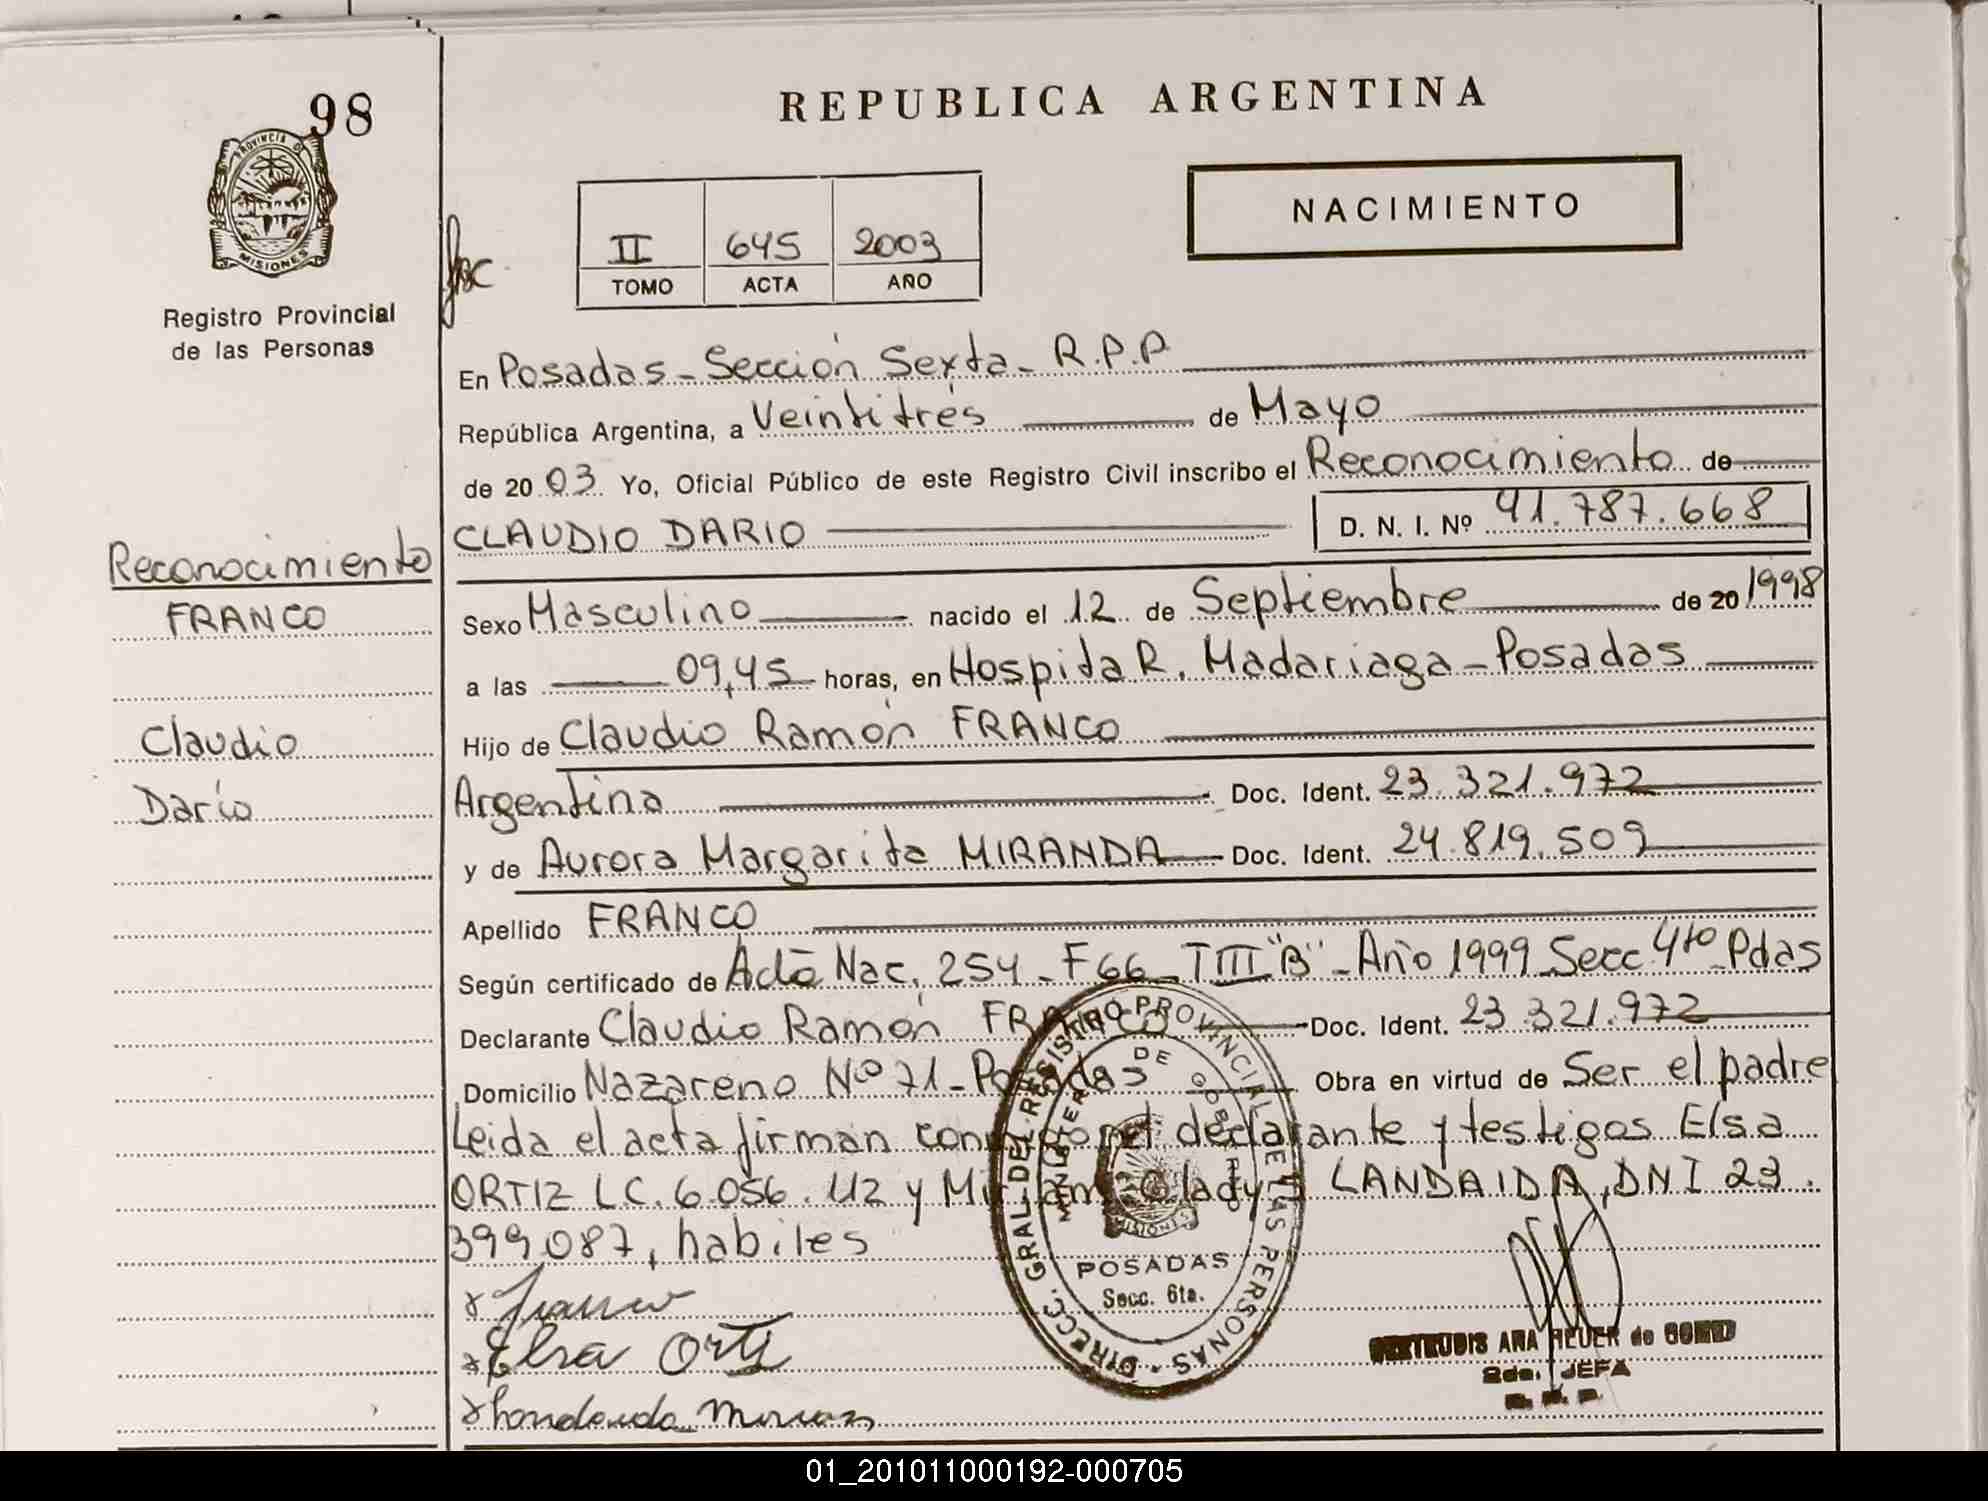 98
PROVINCIA DE
MISIONES
Registro Provincial
de las Personas
REPUBLICA ARGENTINA
NACIMIENTO
II 645 2003
TOMO ACTA AÑO
En Posadas - Sección Sexta - R.P.P
República Argentina, a Veintitrés de Mayo
de 20 03 Yo, Oficial Público de este Registro Civil inscribo el Reconocimiento de
CLAUDIO DARIO D. N. I. Nº 41.787.668
Reconocimiento
FRANCO
Claudio
Darío
Sexo Masculino nacido el 12 de Septiembre de 20 1998
a las 09,45 horas, en Hospita R. Madariaga - Posadas
Hijo de Claudio Ramón FRANCO
Argentina Doc. Ident. 23.321.972
y de Aurora Margarita MIRANDA Doc. Ident. 24.819.509
Apellido FRANCO
Según certificado de Acta Nac. 254 - F 66 - T III "B" - Año 1999 Secc 4to Pdas
Declarante Claudio Ramón FRANCO Doc. Ident. 23.321.972
Domicilio Nazareno Nº 71 - Posadas Obra en virtud de Ser el padre
Leida el acta firman conmigo el declarante y testigos Elsa
ORTIZ L.C. 6.056.112 y Miriam Gladys LANDAIDA, DNI 23.
399.087, habiles
DIRECC. GRAL. DEL REGISTRO PROVINCIAL DE LAS PERSONAS
MINISTERIO DE GOBIERNO
MISIONES
POSADAS
Secc. 6ta.
x Franco
x Elsa Orti
GERTRUDIS ANA HEUER de
2da. JEFA
R. P. P.
01_201011000192-000705